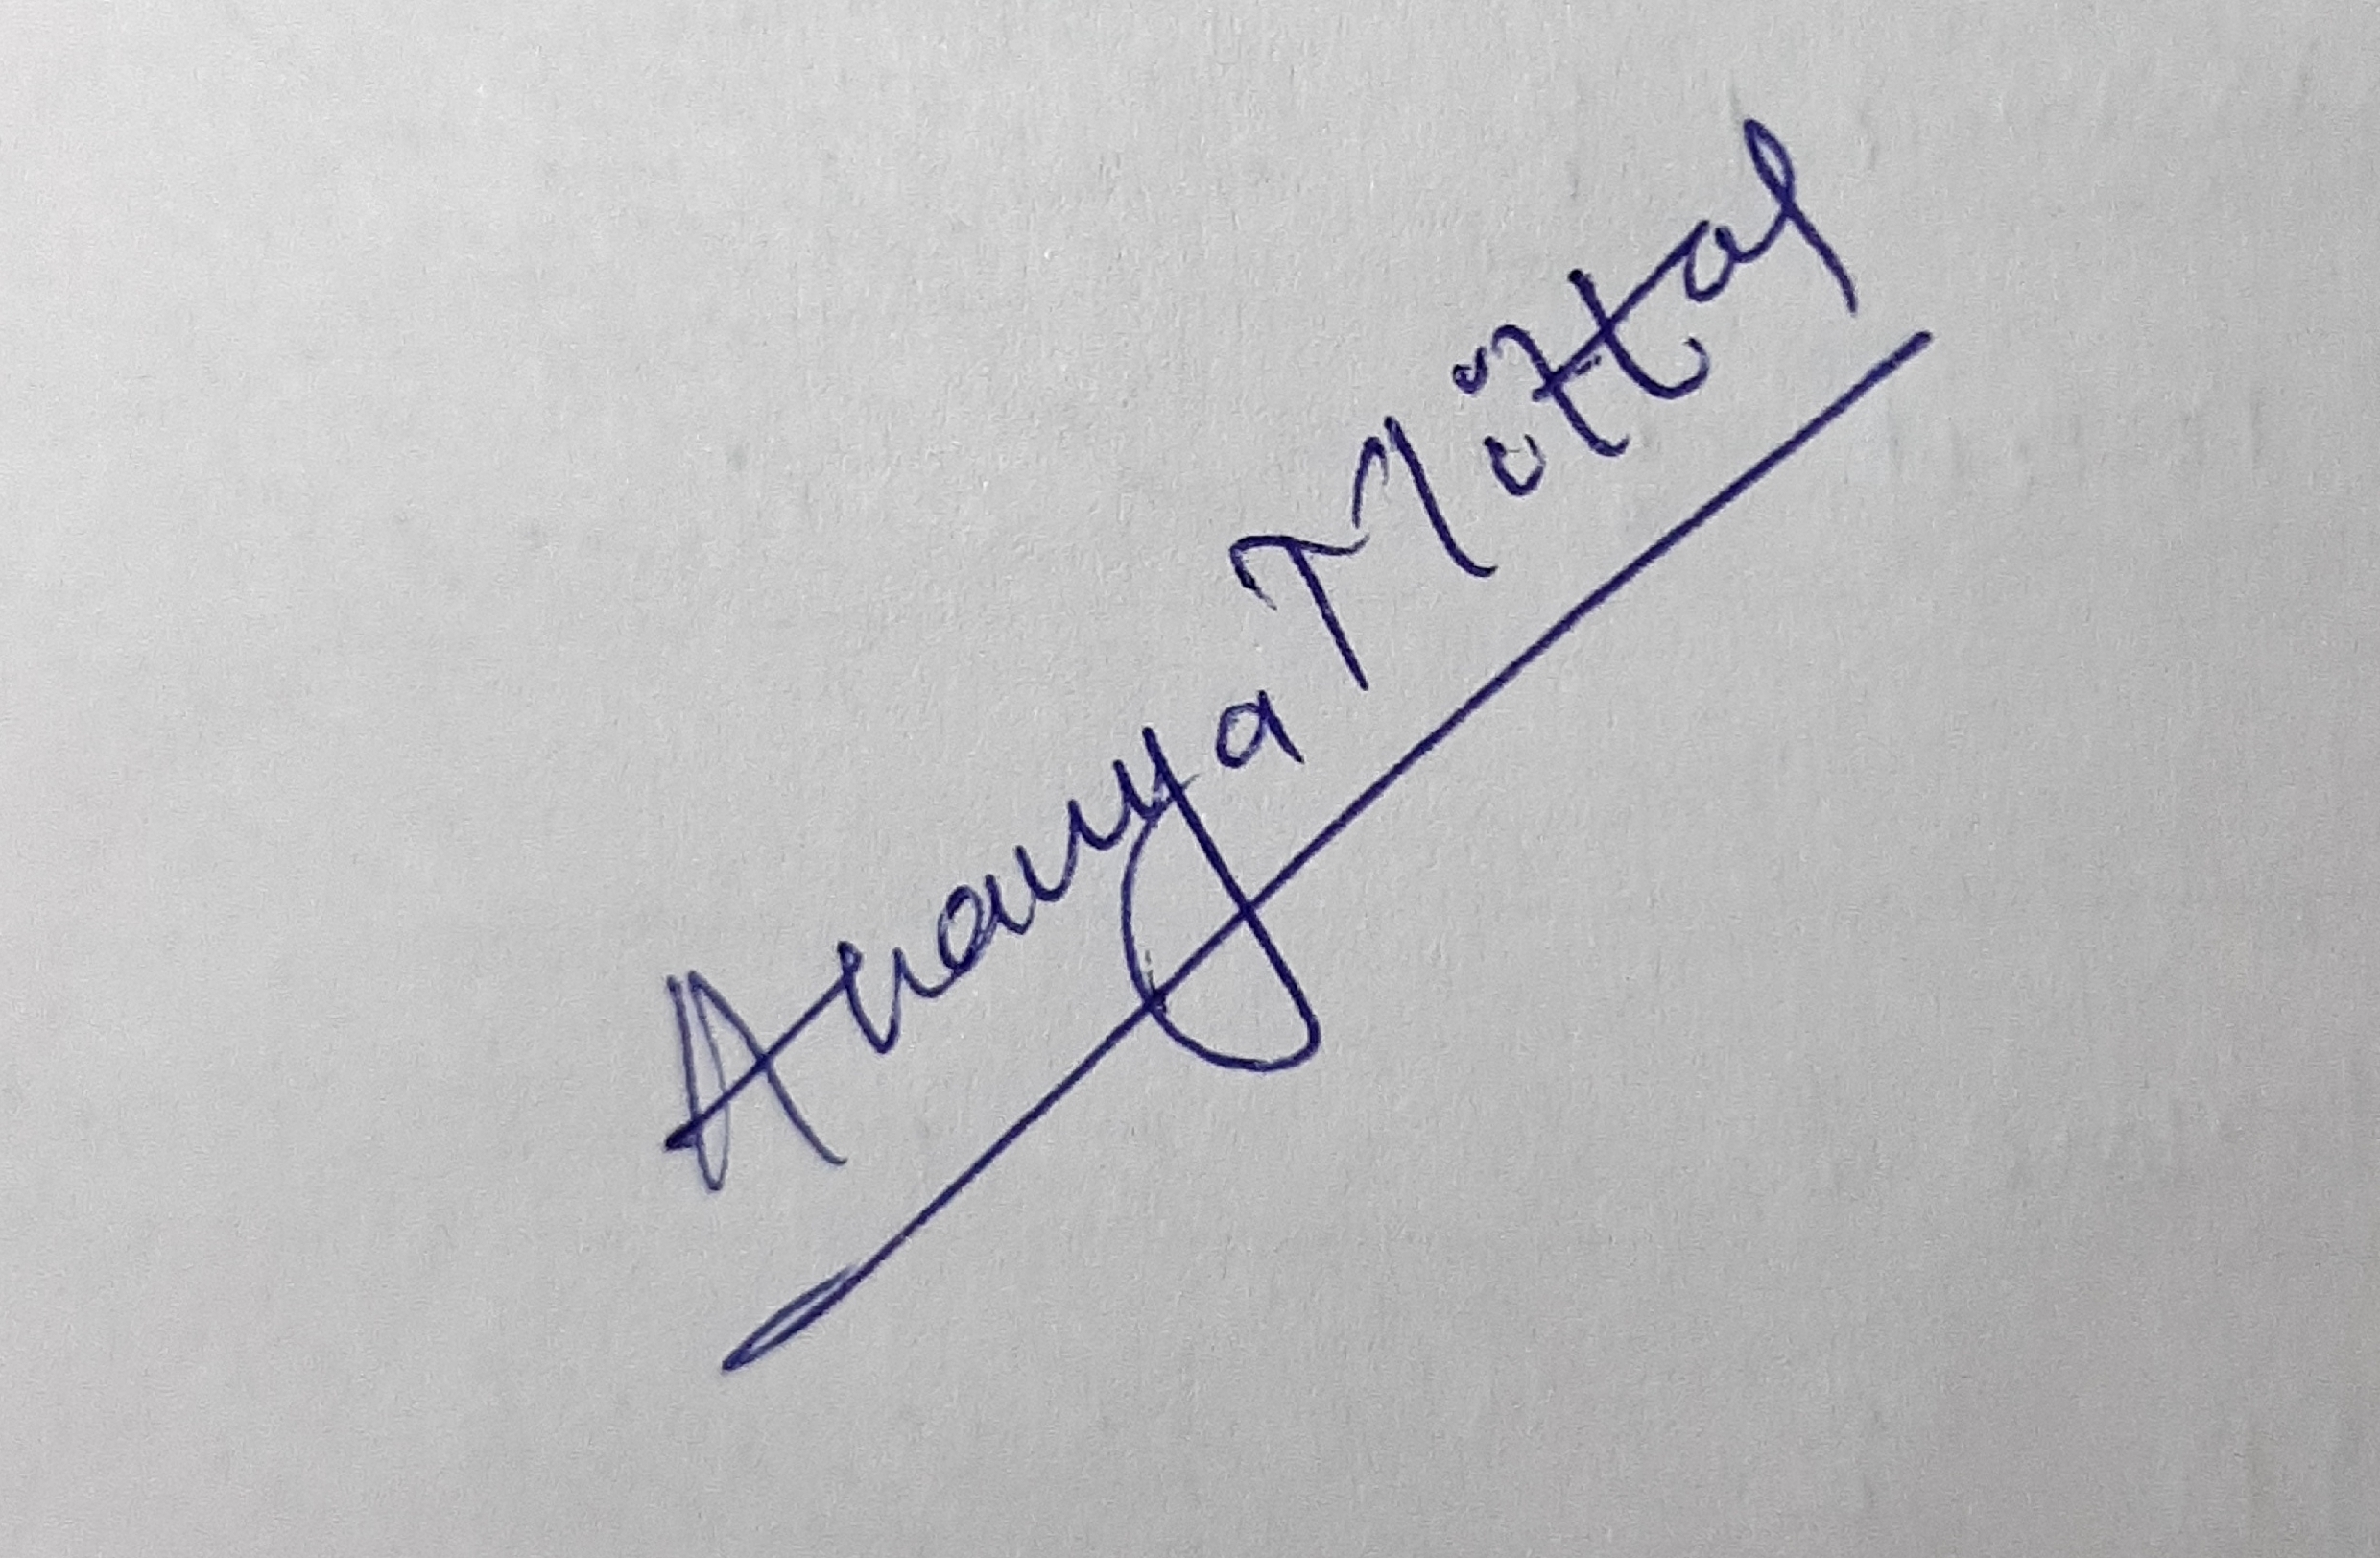 Ananya Mittal